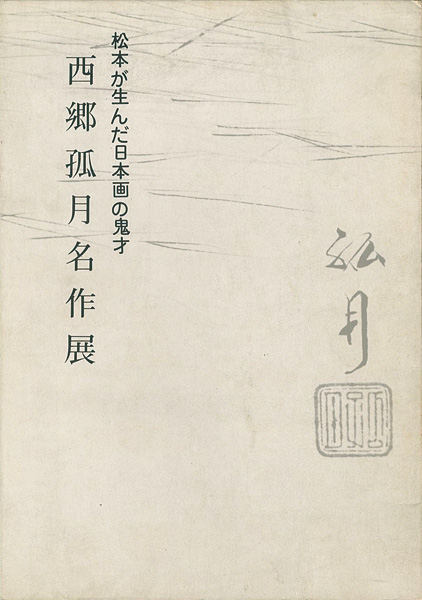 松本が生んだ日本画の鬼才
西郷孤月名作展
孤月